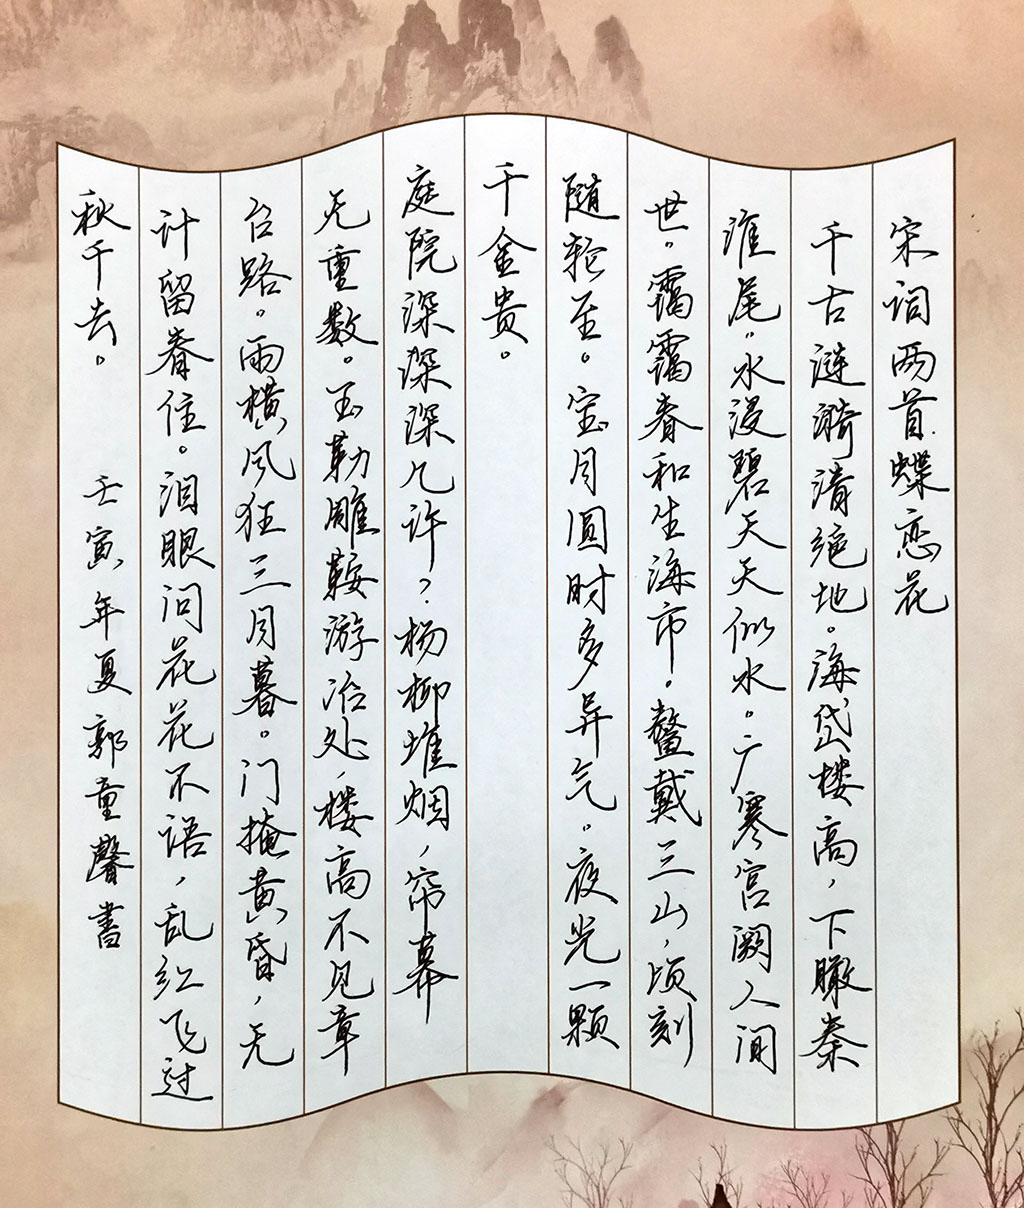 宋词两首蝶恋花
千古涟漪清绝地。海岱楼高,下瞰秦
淮尾。水浸碧天天似水。广寒宫阙人间
世。霭霭春和生海市。鳌戴三山,顷刻
随轮至。宝月圆时多异气。夜光一颗
千金贵。
庭院深深深几许?杨柳堆烟,帘幕
无重数。玉勒雕鞍游冶处,楼高不见章
台路。雨横风狂三月暮。门掩黄昏,无
计留春住。泪眼问花花不语,乱红飞过
秋千去。
壬寅年夏郭童馨书